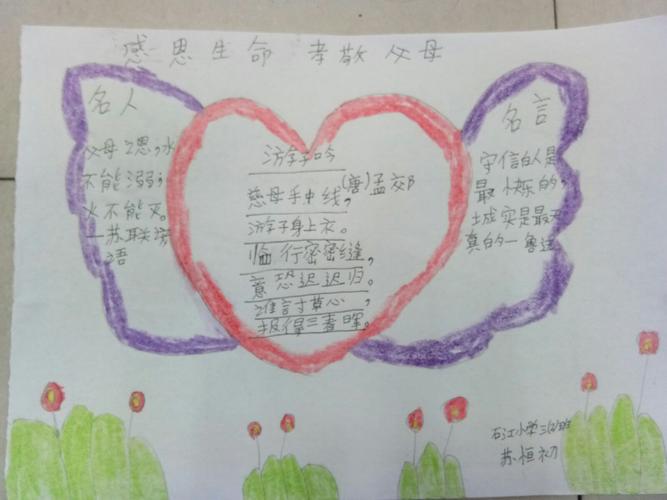 感恩生命 孝敬父母
名人
父母之恩,水
不能溺,
火不能灭。
一苏联谚
语
游子吟
(唐)孟郊
慈母手中线,
游子身上衣。
临行密密缝,
意恐迟迟归。
谁言寸草心,
报得三春晖。
名言
守信的人是
最快乐的,
诚实是最天
真的一鲁迅
石江小学三(2)班
苏恒初